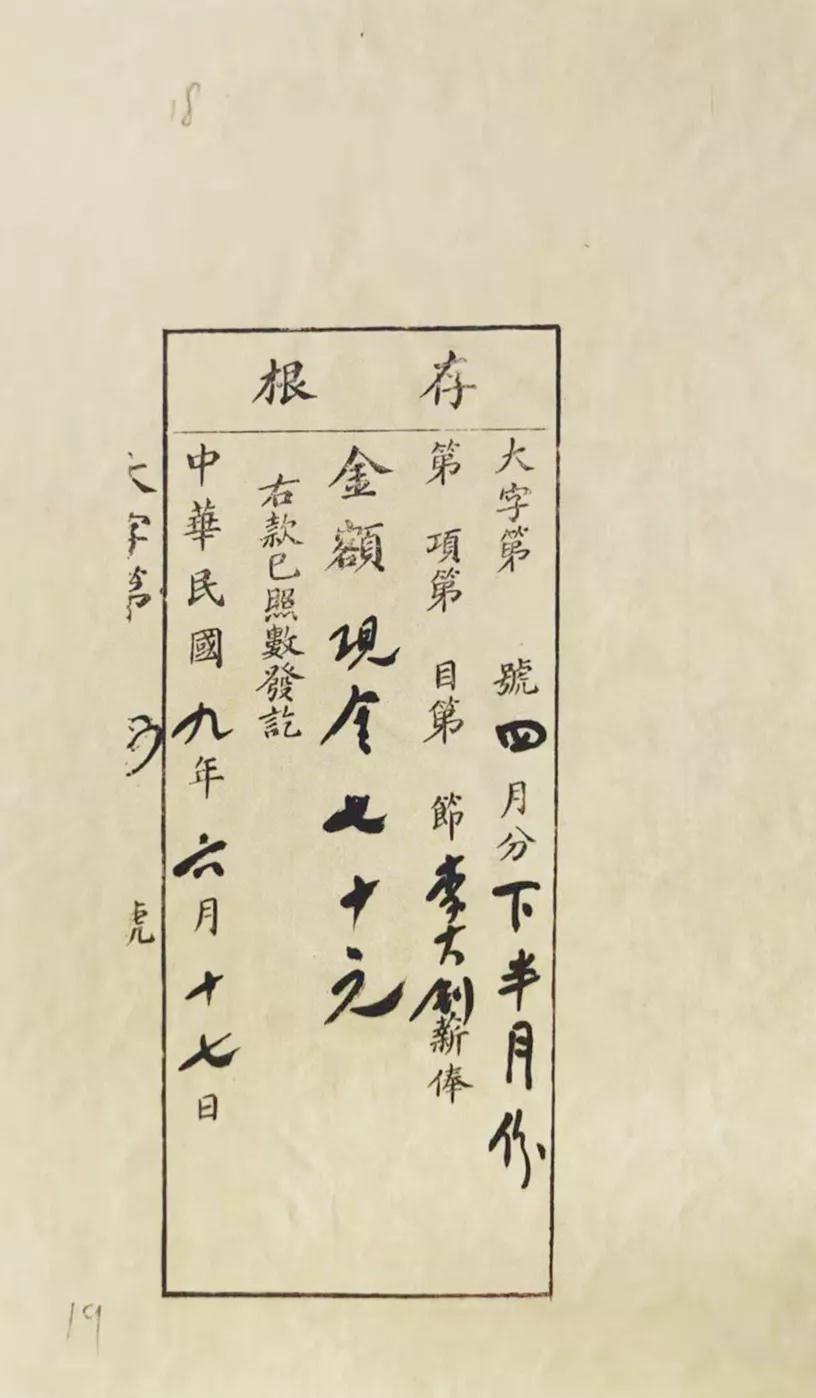 18
存根
大字第 號四月分下半月份
第 項第 目第 節李大釗薪俸
金額 現金七十元
右款已照數發訖
中華民國九年六月十七日
大字第 號
19